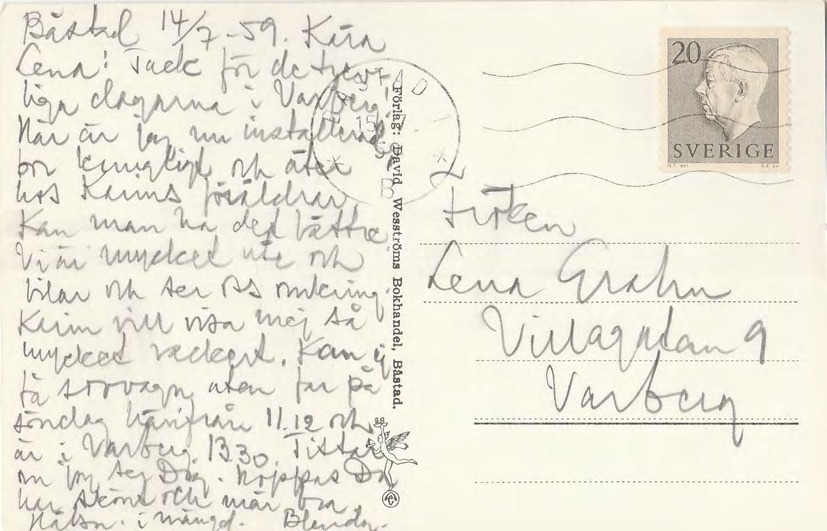 Båstad 14/7-59. Kära
Lena! Tack för de trev-
liga dagarna i Varberg!
Här är jag nu installerad
bor kungligt och äter
hos Karins föräldrar
Kan man ha det bättre
Vi är mycket ute och
bilar och ser oss omkring.
Karin vill visa mej så
mycket vackert. Kan ej
få sovvagn utan far på
söndag härifrån 11.12 och
är i Varberg 13.30. Tittar
om jag ser Dig. Hoppas Du
har skönt och mår bra
Hälsn. i mängd. Blenda.
Förlag: David Wesströms Bokhandel, Båstad.
20
SVERIGE
Fröken
Lena Grahn
Villagatan 9
Varberg